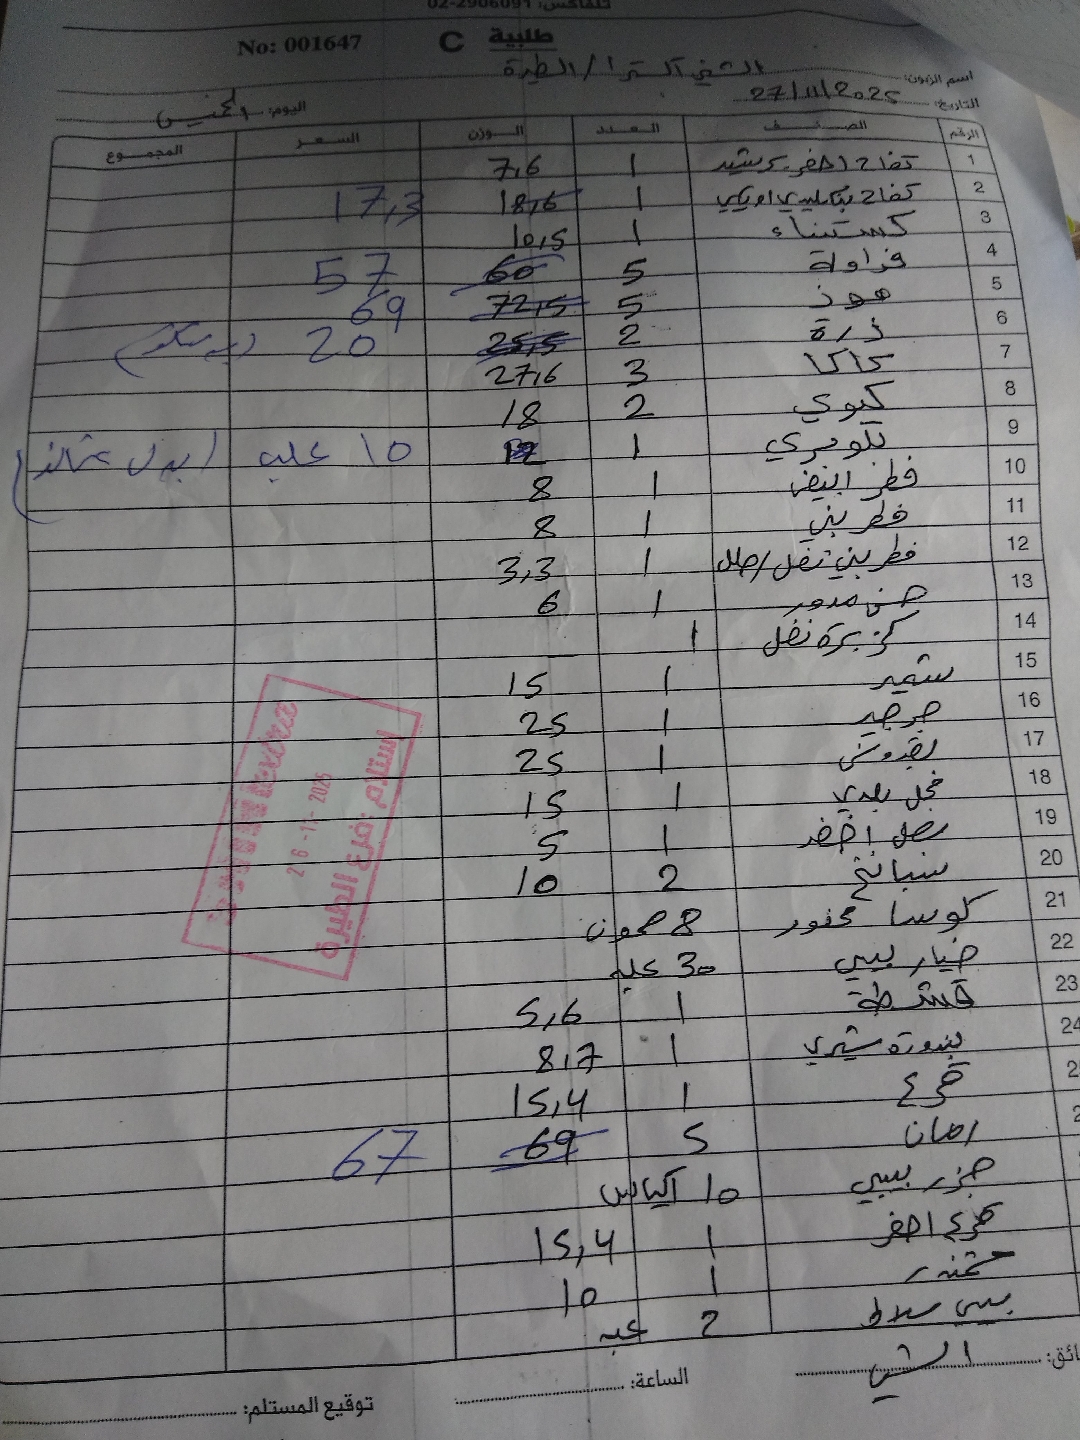 تلفاكس: 02-2906091
No: 001647 C طلبية
اسم الزبون: الشني اكسترا / الطيرة
التاريخ: 27/11/2025 اليوم: الخميس
الرقم الصنف العدد الوزن السعر المجموع
1 تفاح اصفر 1 7,6
2 تفاح 1 18,6 17,3
3 كستناء 1 10,5
4 فراولة 5 60 57
5 موز 5 72,5 69
6 ذرة 2 25,5 20
7 كاكا 3 27,6
8 كيوي 2 18
9 بلوبيري 1 12 10 علب
10 فطر ابيض 1 8
11 فطر بني 1 8
12 فطر بني 1 3,3
13 مدور 1 6
14 كزبرة نفل 1
15 شمر 1 15
16 جرجير 1 25
17 بقدونس 1 25
18 فجل بلدي 1 15
19 بصل اخضر 1 5
20 سبانخ 2 10
21 كوسا محفور 8 صحون
22 خيار بيبي 30 علبة
23 قشطة 1 5,6
24 بندورة شيري 1 8,7
قرع 1 15,4
رمان 5 69 67
جزر بيبي 10 اكياس
قرع اصفر 1 15,4
شمندر 1 10
بيبي سلاط 2 علبة
الساعة: توقيع المستلم: